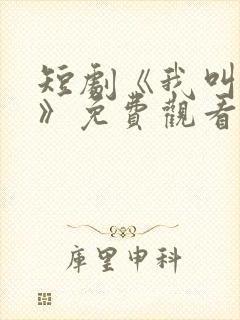 短劇《我叫
》免費觀看
庫里申科